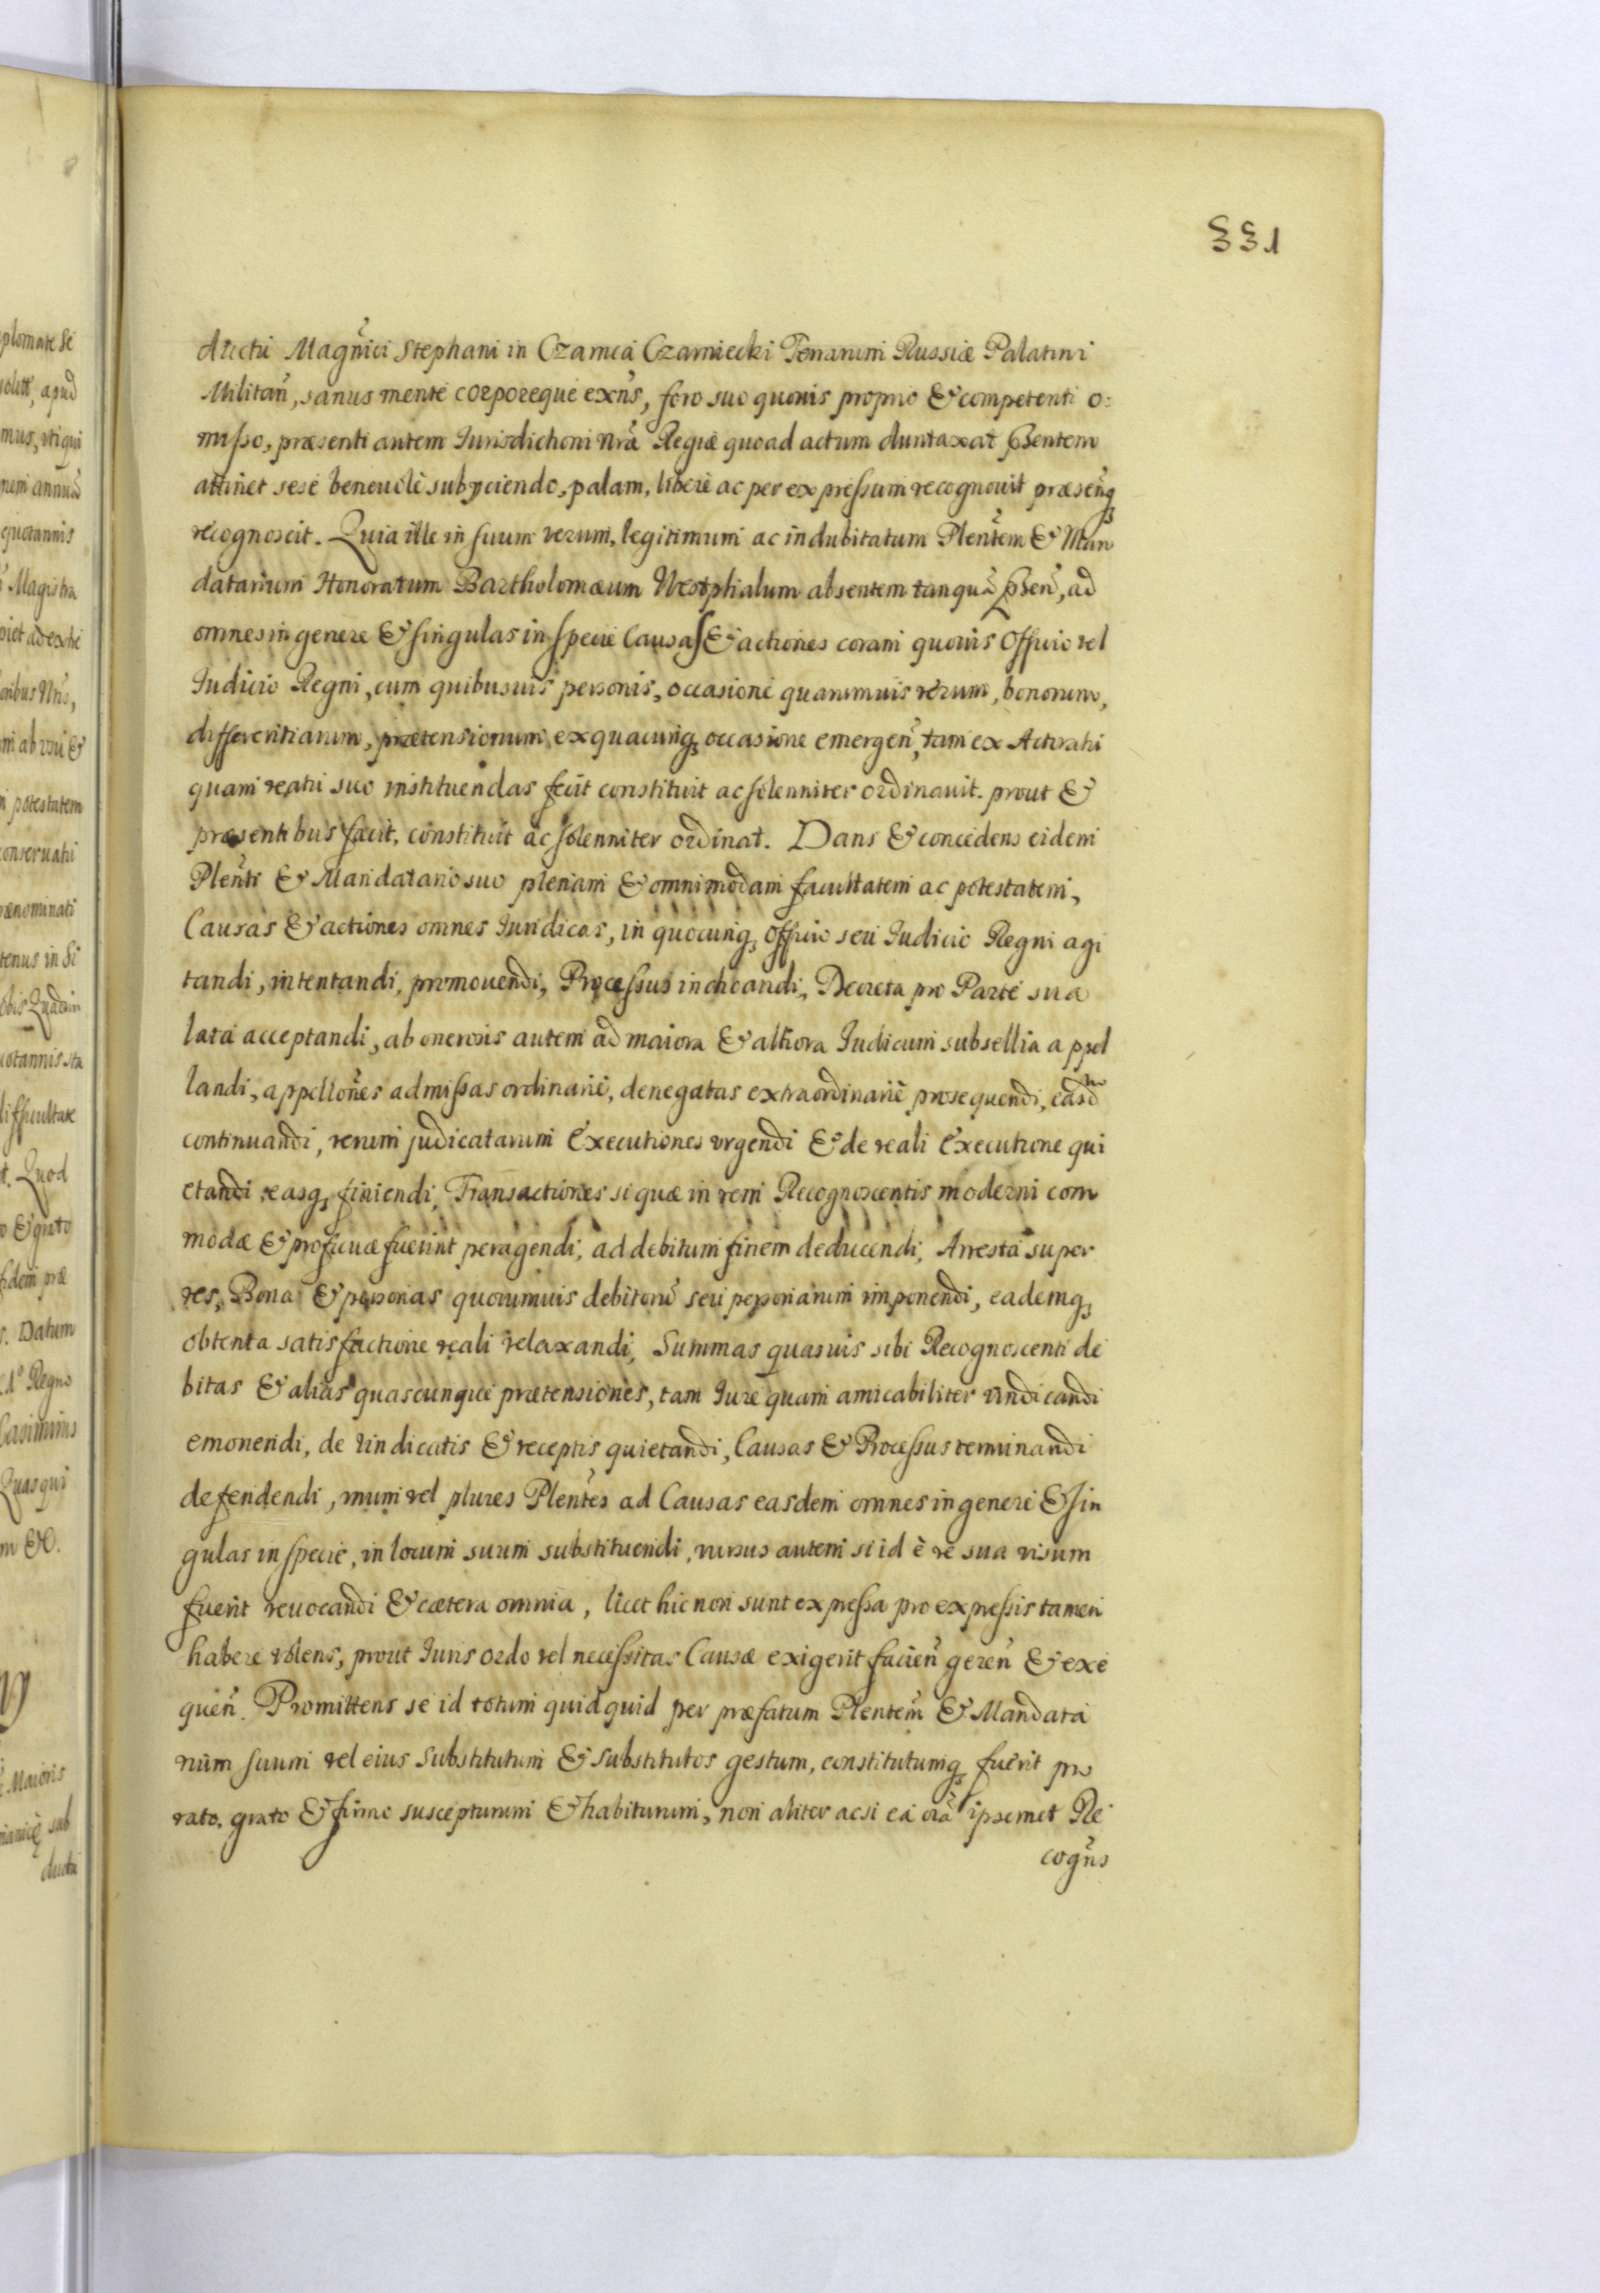 331
ductu Magñici Stephani in Czarnca Czarniecki Terrarum Russiæ Palatini
Militañ, sanus mente corporeque exñs, foro suo quovis proprio & competenti o:
misso, præsenti autem Iurisdictioni Nrã Regiæ quoad actum duntaxat pñsentem
attinet sese benevolè subijciendo, palam, liberè ac per expressum recognovit præsentq
recognoscit. Quia ille in suum verum, legitimum ac indubitatum Plentẽm & Man
datarium Honoratum Bartholomæum Westphalum absentem tanquã pñsen̄, ad
omnes in genere & singulas in specie Causas & actiones coram quovis Officio vel
Iudicio Regni, cum quibusvis personis, occasione quarumvis rerum, bonorum,
differentiarum, prætensionum, ex quacunq occasione emergen̄, tam ex Actoratu
quam reatu suo instituendas fecit constituit ac solenniter ordinavit. prout &
præsentibus facit, constituit ac solenniter ordinat. Dans & concedens eidem
Plenti & Mandatario suo plenam & omnimodam facultatem ac potestatem,
Causas & actiones omnes Iuridicas, in quocunq Officio seu Iudicio Regni agi
tandi, intentandi, promovendi, Processus inchoandi, Decreta pro Parte sua
lata acceptandi, ab onerosis autem ad maiora & altiora Iudicum subsellia appel
landi, appellões admissas ordinariè, denegatas extraordinariè prosequendi, easd̄m
continuandi, rerum judicatarum Executiones vrgendi & de reali Executione qui
etandi easq finiendi, Transactiones si quæ in rem Recognoscentis moderni com
modæ & proficuæ fuerint peragendi, ad debitum finem deducendi, Arresta super
res, Bona & personas quorumvis debitorũ seu personarum imponendi, eademq
obtenta satisfactione reali relaxandi, Summas quasvis sibi Recognoscenti de
bitas & alias quascunque prætensiones, tam Iure quam amicabiliter vindicandi
emonendi, de vindicatis & receptis quietandi, Causas & Processus terminandi
defendendi, vnum vel plures Plentes ad Causas easdem omnes in genere & sin
gulas in specie, in locum suum substituendi, rursus autem si id è re sua visum
fuerit revocandi & cætera omnia, licet hic non sunt expressa pro expressis tamen
habere volens, prout Iuris ordo vel necessitas Causæ exigerit facien̄ geren̄ & exe
quen̄. Promittens se id totum quidquid per præfatum Plentem̄ & Mandata
rium suum vel eius Substitutum & Substitutos gestum, constitutumq fuerit pro
rato, grato & firmo suscepturum & habiturum, non aliter ac si ea oīa ipsemet Re
cogñs